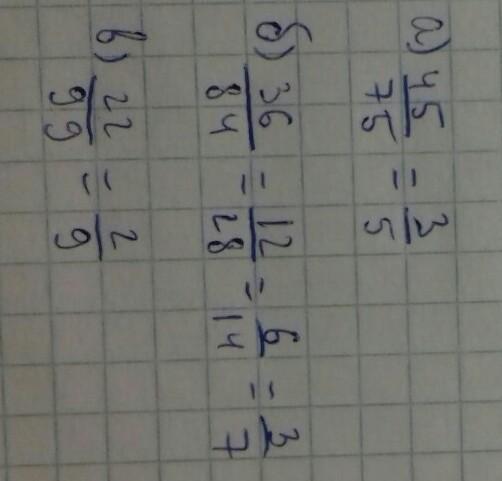 а) 45/75 = 3/5
б) 36/84 = 12/28 = 6/14 = 3/7
в) 22/99 = 2/9